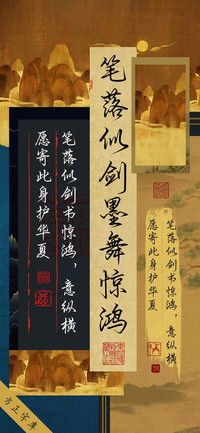 笔落似剑墨舞惊鸿
笔落似剑书惊鸿，意纵横
愿寄此身护华夏
笔落似剑书惊鸿，意纵横
愿寄此身护华夏
方正字库